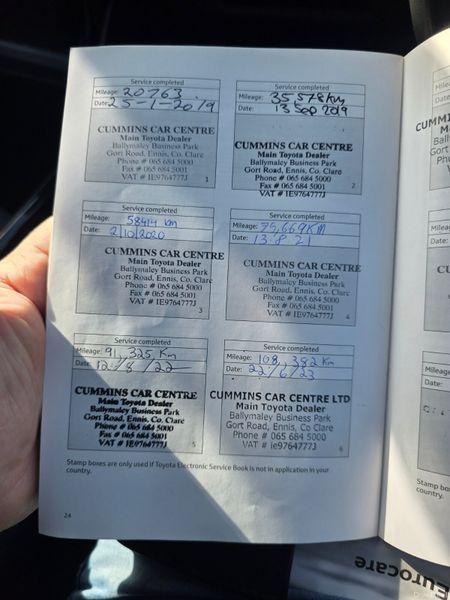 Service completed
Mileage: 20763
Date: 25-1-2019
CUMMINS CAR CENTRE
Main Toyota Dealer
Ballymaley Business Park
Gort Road, Ennis, Co. Clare
Phone # 065 684 5000
Fax # 065 684 5001
VAT # IE9764777J
1
Service completed
Mileage: 35578Km
Date: 13 Sep 2019
CUMMINS CAR CENTRE
Main Toyota Dealer
Ballymaley Business Park
Gort Road, Ennis, Co. Clare
Phone # 065 684 5000
Fax # 065 684 5001
VAT # IE9764777J
2
Service completed
Mileage: 58414 km
Date: 2/10/2020
CUMMINS CAR CENTRE
Main Toyota Dealer
Ballymaley Business Park
Gort Road, Ennis, Co. Clare
Phone # 065 684 5000
Fax # 065 684 5001
VAT # IE9764777J
3
Service completed
Mileage: 75,669KM
Date: 13.8.21
CUMMINS CAR CENTRE
Main Toyota Dealer
Ballymaley Business Park
Gort Road, Ennis, Co. Clare
Phone # 065 684 5000
Fax # 065 684 5001
VAT # IE9764777J
4
Service completed
Mileage: 91,325 Km
Date: 12/8/22
CUMMINS CAR CENTRE
Main Toyota Dealer
Ballymaley Business Park
Gort Road, Ennis, Co. Clare
Phone # 065 684 5000
Fax # 065 684 5001
VAT # IE9764777J
5
Service completed
Mileage: 108,382 Km
Date: 22/6/23
CUMMINS CAR CENTRE LTD
Main Toyota Dealer
Ballymaley Business Park
Gort Road, Ennis, Co. Clare
Phone # 065 684 5000
VAT # ie9764777J
6
Stamp boxes are only used if Toyota Electronic Service Book is not in application in your
country.
24
Eurocare